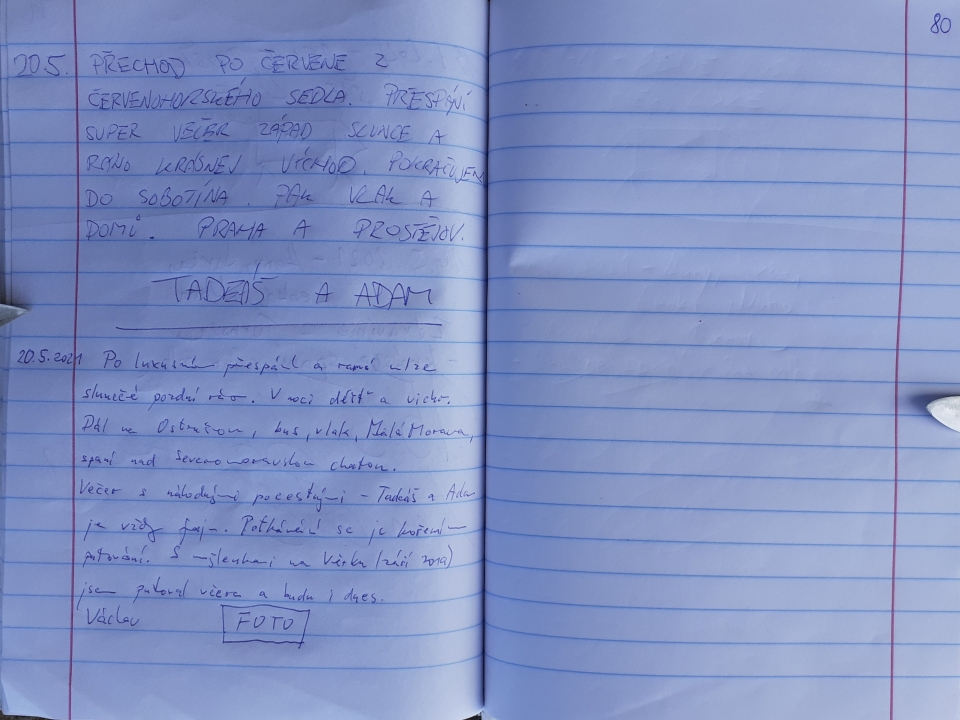 80
20.5. PŘECHOD PO ČERVENÉ Z
ČERVENOHORSKÉHO SEDLA. PŘESPÁNÍ
SUPER VEČER ZÁPAD SLUNCE A
RÁNO KRÁSNEJ VÝCHOD. POKRAČUJEM
DO SOBOTÍNA. PAK VLAK A
DOMŮ. PRAHA A PROSTĚJOV.
TADEÁŠ A ADAM
20.5.2021 Po luxusním přespání a ranní mlze
slunečné pozdní ráno. V noci déšť a vichr.
Dál na Ostružnou, bus, vlak, Malá Morava,
spaní nad Severomoravskou chatou.
Večer s náhodnými pocestnými - Tadeáš a Adam
je vždy fajn. Potkávání se je kořením
putování. S myšlenkami na Věrku (září 2019)
jsem putoval včera a budu i dnes.
Václav FOTO